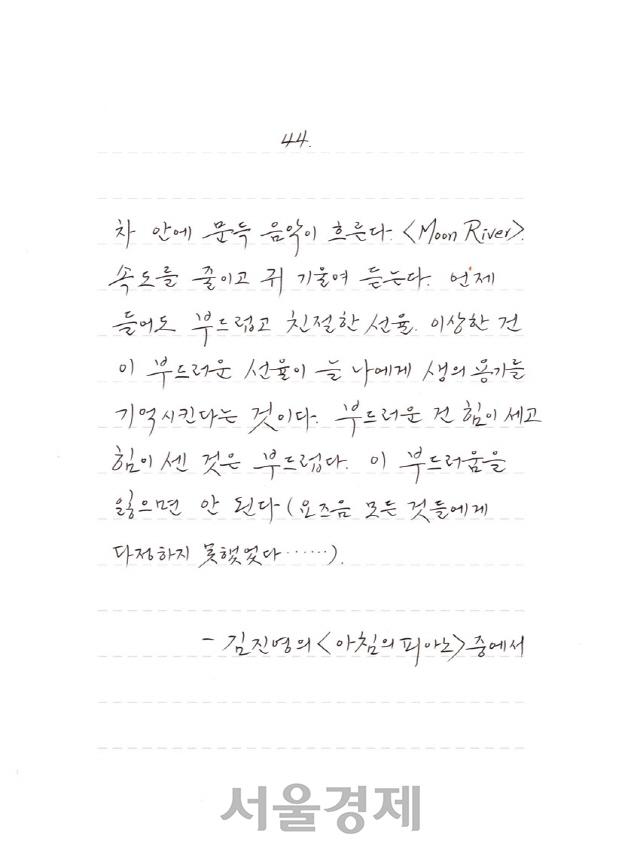 44.
차 안에 문득 음악이 흐른다. <Moon River>.
속도를 줄이고 귀 기울여 듣는다. 언제
들어도 부드럽고 친절한 선율. 이상한 건
이 부드러운 선율이 늘 나에게 생의 용기를
기억시킨다는 것이다. 부드러운 건 힘이 세고
힘이 센 것은 부드럽다. 이 부드러움을
잃으면 안 된다 (요즈음 모든 것들에게
다정하지 못했었다……).
- 김진영의 <아침의 피아노> 중에서
서울경제